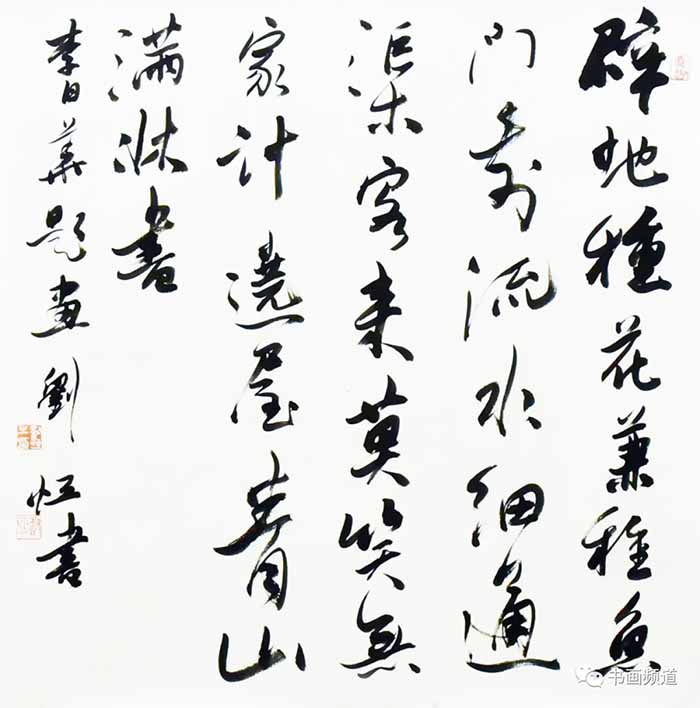 辟地種花兼種魚
門前流水細通
渠客来莫笑無
家計遶屋青山
滿牀書
李日華題畫劉恒書
书画频道